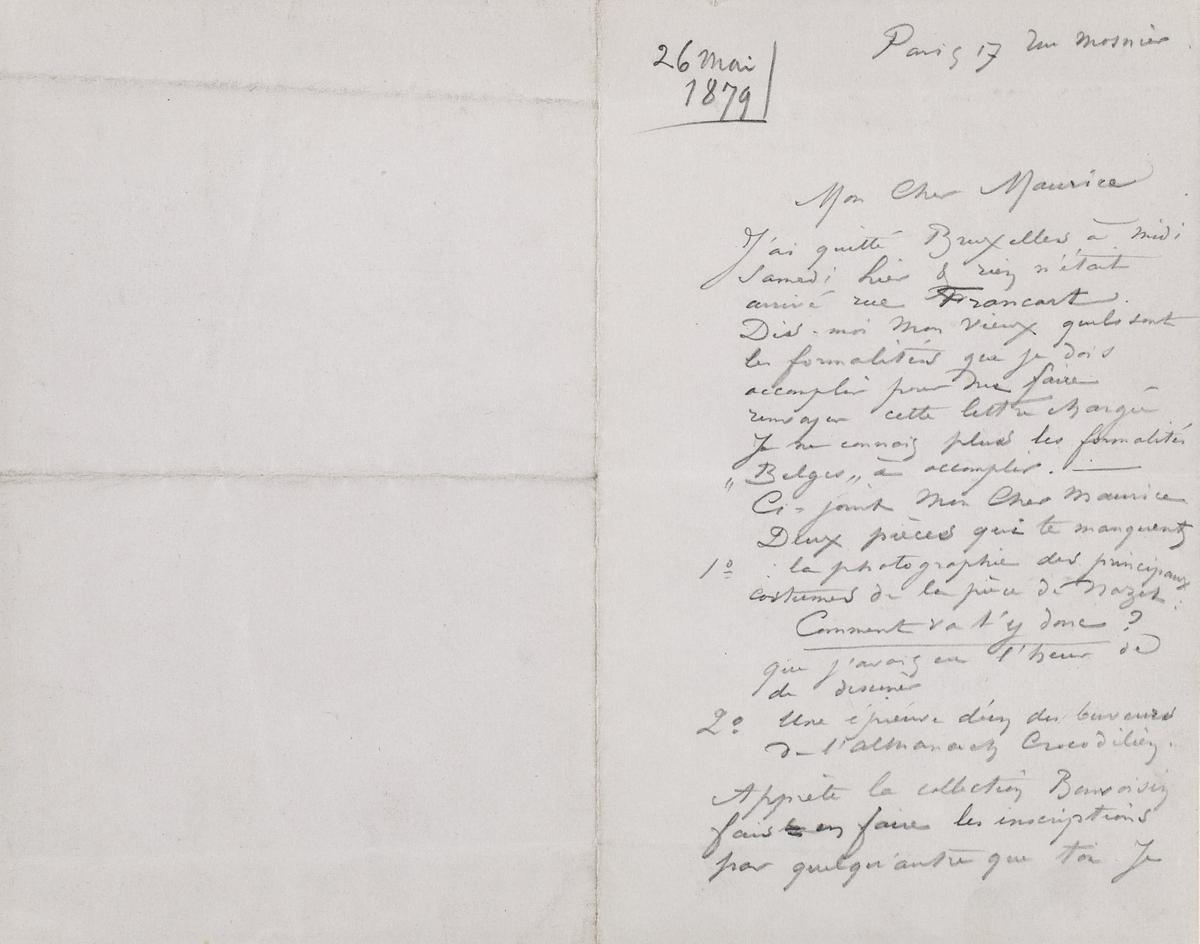 26 Mai
1879
Paris 17 rue Mosnier
Mon Cher Maurice
J'ai quitté Bruxelles à midi
Samedi hier & rien n'était
arrivé rue Francart.
Dis-moi Mon Vieux quels sont
les formalités que je dois
accomplir pour me faire
renvoyer cette lettre chargée
Je ne connais plus les formalités
„Belges„ à accomplir. —
Ci-joint Mon Cher Maurice
Deux pièces qui te manquent
1º : la photographie des principaux
costumes de la pièce de Hazet :
Comment va t'y donc ?
que j'avais eu l'heur de
de dessiner
2º Une épreuve d'un des buveurs
de l'almanach Crocodilien.
Apprête la collection Bonvoisin
fais en faire les inscriptions
par quelqu'autre que toi Je